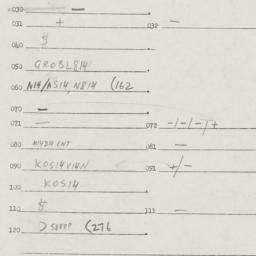 030 —
031 + 032 —
040 $
050 GROBL814
060 N14/NS14, N814 (162
070 —
071 — 072 -1-1-1+
080 081 —
090 KOS14V14N 091 +/-
100 KOS14
110 $ 111 —
120 (276